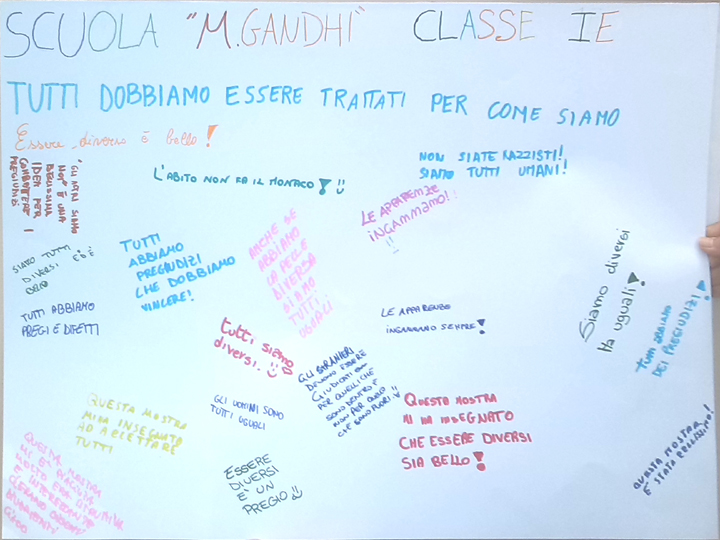 SCUOLA "M.GANDHI" CLASSE IE
TUTTI DOBBIAMO ESSERE TRATTATI PER COME SIAMO
Essere diverso è bello!
"GLI ALTRI SIAMO
NOI" È UNA
BELLISSIMA
IDEA PER
COMBATTERE I
PREGIUDIZI
L'ABITO NON FA IL MONACO!
NON SIATE RAZZISTI!
SIAMO TUTTI UMANI!
LE APPARENZE
INGANNANO!!
SIAMO TUTTI
DIVERSI
TUTTI
ABBIAMO
PREGIUDIZI
CHE DOBBIAMO
VINCERE!
ANCHE SE
ABBIAMO
LA PELLE
DIVERSA
SIAMO
TUTTI
UGUALI
Siamo diversi
Ma uguali!
TUTTI ABBIAMO
DEI PREGIUDIZI!
TUTTI ABBIAMO
PREGI E DIFETTI
tutti siamo
diversi.
LE APPARENZE
INGANNANO SEMPRE!
GLI STRANIERI
DEVONO ESSERE
GIUDICATI
PER QUELLI CHE
SONO DENTRO E
NON PER QUELLO
CHE SONO FUORI
QUESTA MOSTRA
MI HA INSEGNATO
AD ACCETTARE
TUTTI
GLI UOMINI SONO
TUTTI UGUALI
QUESTA MOSTRA
MI HA INSEGNATO
CHE ESSERE DIVERSI
SIA BELLO!
QUESTA MOSTRA
È STATA BELLISSIMA!
QUESTA MOSTRA
MI È PIACIUTA
MOLTO ERA ISTRUTTIVA
E INTERESSANTE
ESSERE
DIVERSI
E' UN
PREGIO